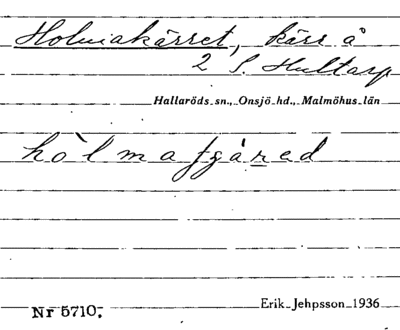 Holmakärret, kärr å
2 S. Hultarp
Hallaröds sn., Onsjö hd., Malmöhus län
Nr 5710.
Erik Jehpsson 1936